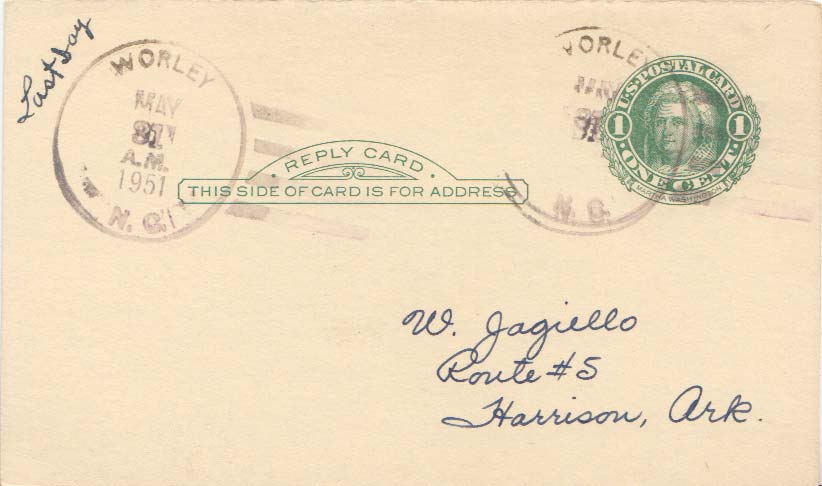 Last Day
WORLEY
MAY
31
A.M.
1951
N. C.
REPLY CARD
THIS SIDE OF CARD IS FOR ADDRESS
WORLEY
MAY
31
N. C.
U.S. POSTAL CARD
1 1
ONE CENT
MARTHA WASHINGTON
W. Jagiello
Route #5
Harrison, Ark.